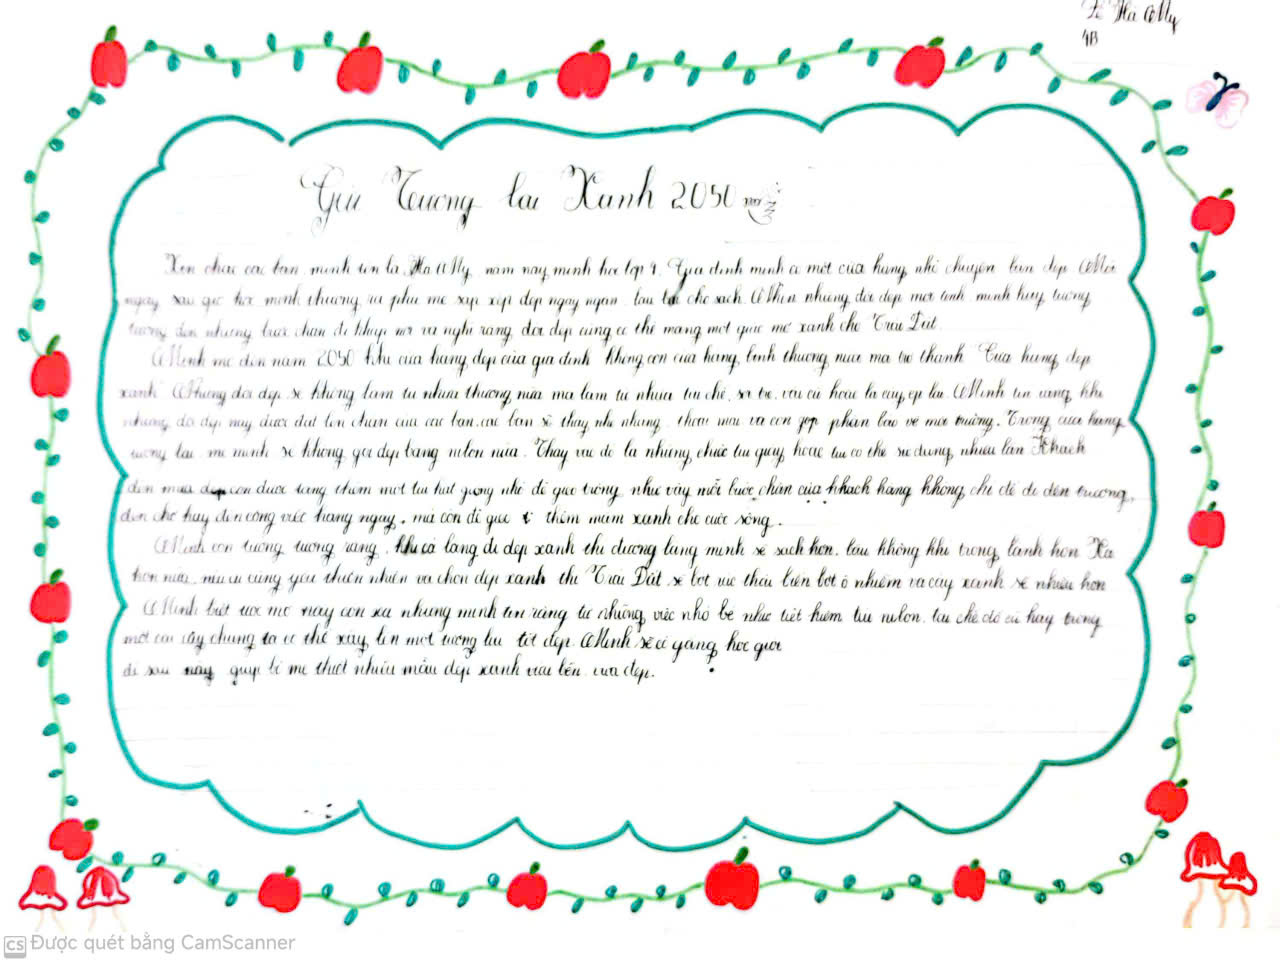 Hà My
4B
Gửi Tương lai Xanh 2050
Xin chào các bạn mình tên là Hà My, năm nay mình học lớp 4. Gia đình mình có một cửa hàng nhỏ chuyên bán dép Mỗi
ngày sau giờ học mình thường ra phụ mẹ sắp xếp dép ngay ngắn, lau kệ cho sạch. Nhìn những đôi dép mới tinh mình hay tưởng
tượng đến những bước chân đi khắp nơi và nghĩ rằng, đôi dép cũng có thể mang một giấc mơ xanh cho Trái Đất.
Mình mơ đến năm 2050 khi cửa hàng dép của gia đình không còn cửa hàng bình thường nữa mà trở thành "Cửa hàng dép
xanh" Những đôi dép sẽ không làm từ nhựa thường nữa mà làm từ nhựa tái chế, sơ tre, vải cũ hoặc lá cây ép lại. Mình tin rằng khi
những đôi dép này được đặt lên chân của các bạn, các bạn sẽ thấy nhẹ nhàng, thoải mái và còn góp phần bảo vệ môi trường. Trong cửa hàng
tương lai mẹ mình sẽ không gói dép bằng nilon nữa. Thay vào đó là những chiếc túi giấy hoặc túi có thể sử dụng nhiều lần Khách
đến mua dép còn được tặng thêm một túi hạt giống nhỏ để gieo trồng như vậy mỗi bước chân của khách hàng không chỉ để đi đến trường,
đến chợ hay đến công việc hàng ngày, mà còn để gieo thêm mầm xanh cho cuộc sống.
Mình còn tưởng tượng rằng, khi cả làng đi dép xanh thì đường làng mình sẽ sạch hơn, bầu không khí trong lành hơn Xa
hơn nữa, nếu ai cũng yêu thiên nhiên và chọn dép xanh thì Trái Đất sẽ bớt rác thải biển bớt ô nhiễm và cây xanh sẽ nhiều hơn
Mình biết ước mơ này còn xa nhưng mình tin rằng từ những việc nhỏ bé như tiết kiệm túi nilon, tái chế đồ cũ hay trồng
một cái cây chúng ta có thể xây lên một tương lai tốt đẹp. Mình sẽ cố gắng học giỏi
để sau này giúp bố mẹ thiết nhiều mẫu dép xanh vừa bền vừa đẹp.
CS Được quét bằng CamScanner